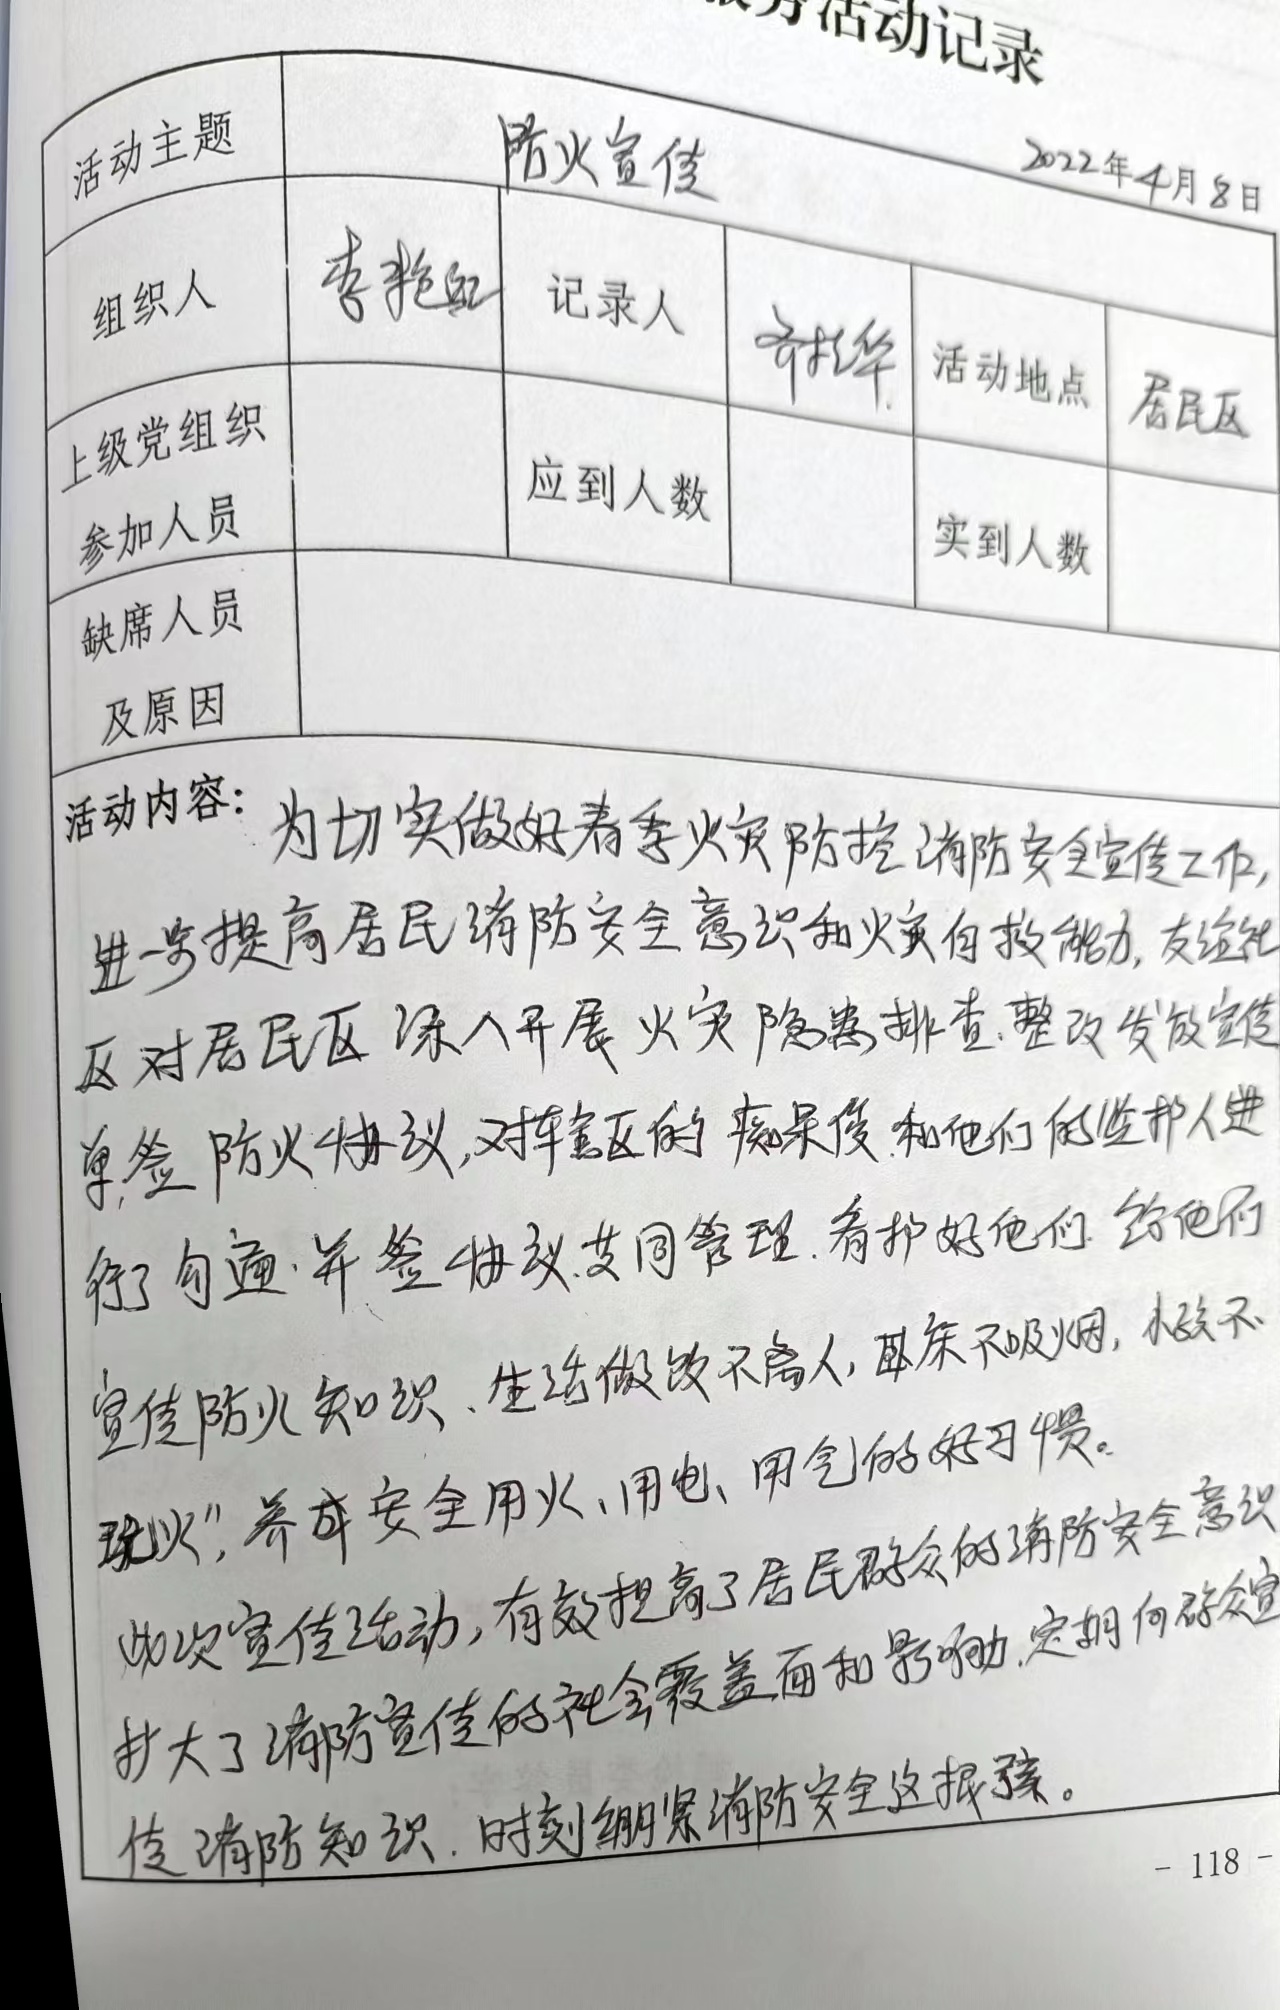 服务活动记录
活动主题 防火宣传 2022年4月8日
组织人 李艳红 记录人 齐桂华 活动地点 居民区
上级党组织
参加人员 应到人数 实到人数
缺席人员
及原因
活动内容: 为切实做好春季火灾防控消防安全宣传工作,
进一步提高居民消防安全意识和火灾自救能力, 社
区对居民区深入开展火灾隐患排查.整改发放宣传
单,签防火协议,对辖区的痴呆傻.和他们的监护人进
行了勾通.并签协议.共同管理.看护好他们.给他们
宣传防火知识、生活做饭不离人, 卧床不吸烟, 小孩不
玩火",养成安全用火、用电、用气的好习惯。
此次宣传活动,有效提高了居民群众的消防安全意识
扩大了消防宣传的社会覆盖面和影响力.定期向群众宣
传消防知识.时刻绷紧消防安全这根弦。
- 118 -